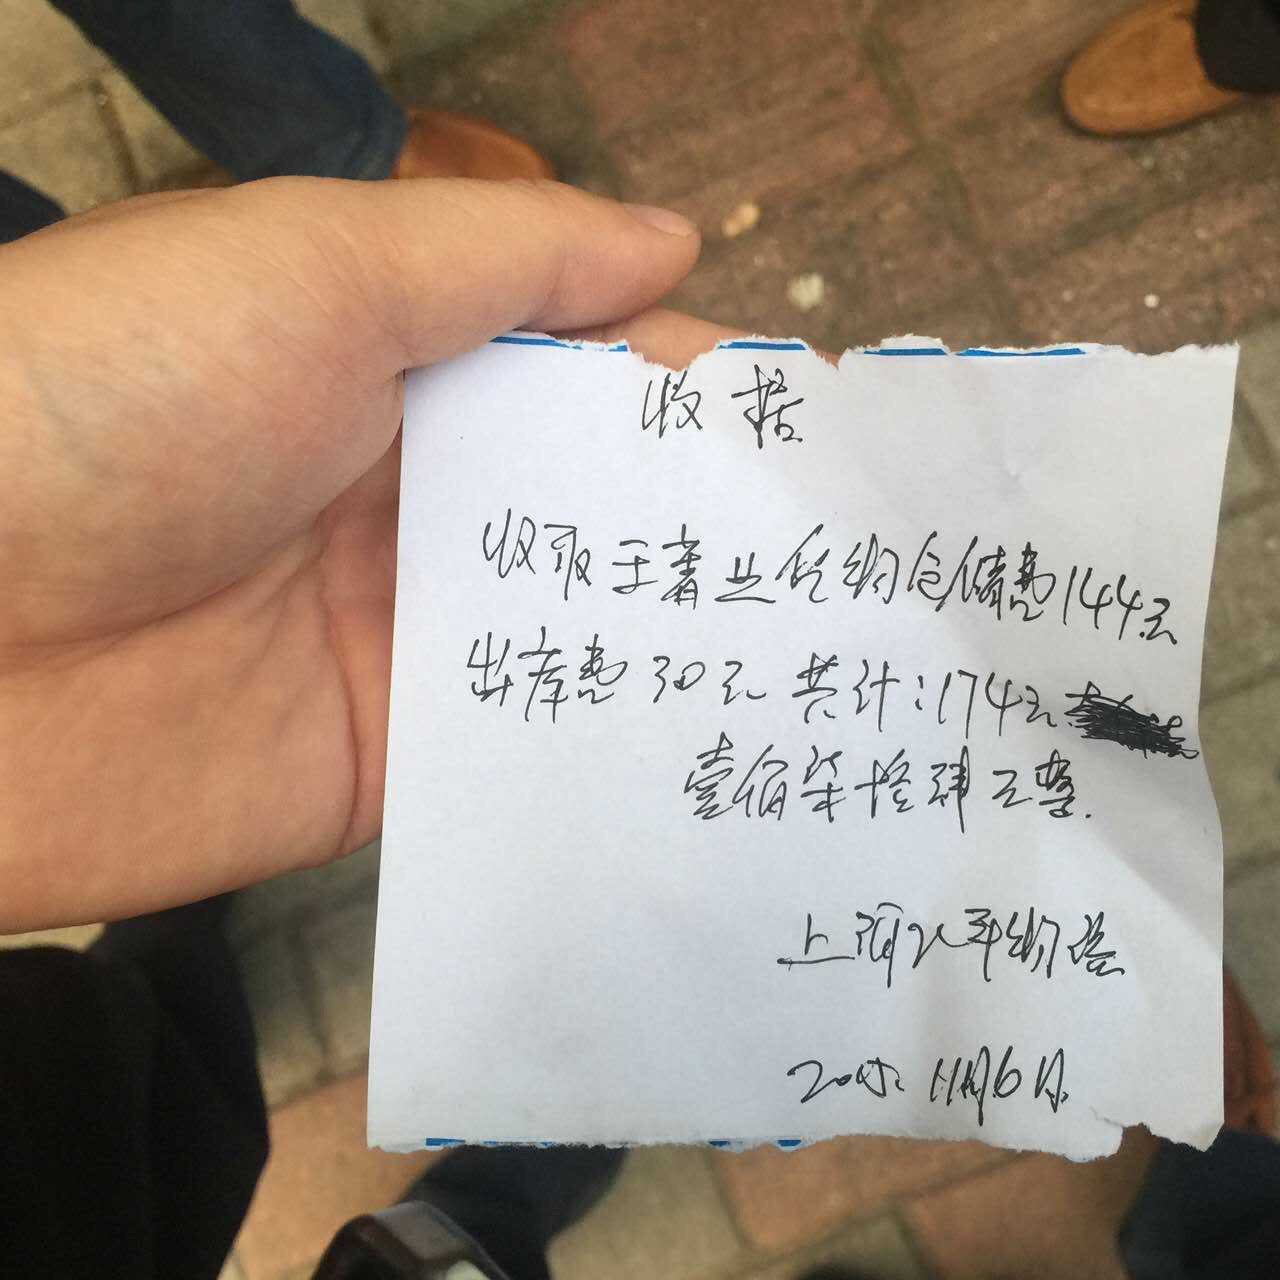 收据
收取王青业货物仓储费144元
出库费30元 共计:174元
壹佰柒拾肆元整.
上海 年物 
2015. 11月6日